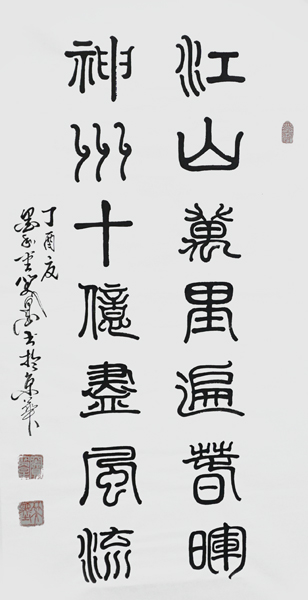 江山萬里遍春暉
神州十億盡風流
丁酉夏
書於京華